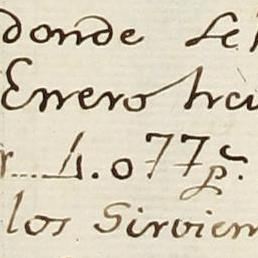 donde se
Enero trei
1.077 p.
los Sirvien